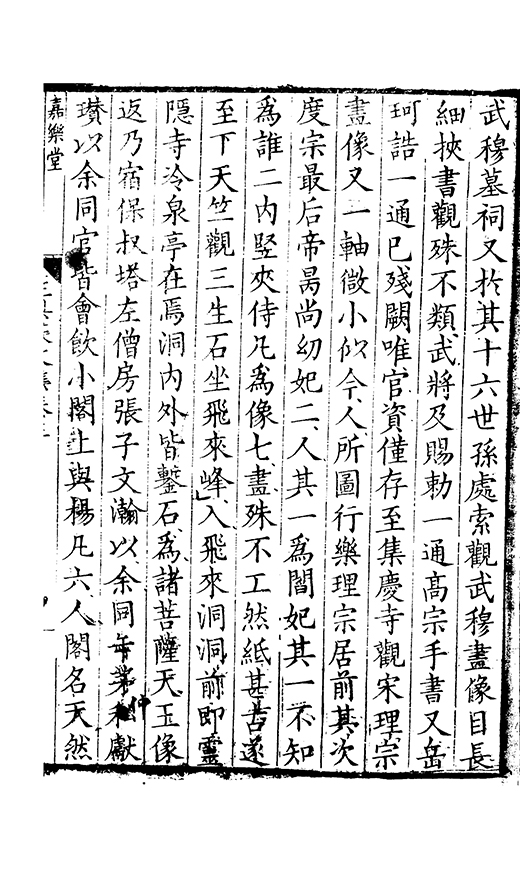 武穆墓祠又於其十六世孫處索觀武穆畫像目長
細挾書觀殊不類武將及賜勅一通高宗手書又岳
珂誥一通已殘闕唯官資僅存至集慶寺觀宋理宗
畫像又一軸微小似今人所圖行樂理宗居前其次
度宗最后帝㬎尚幼妃二人其一為閻妃其一不知
為誰二内竪夾侍凡為像七畫殊不工然紙甚古遂
至下天竺觀三生石坐飛來峰入飛來洞洞前即靈
隱寺冷泉亭在焉洞内外皆鑿石為諸菩薩天王像
返乃宿保叔塔左僧房張子文瀚以余同年弟仲獻
瓚以余同官皆會飲小閣上與楊凡六人閣名天然
嘉樂堂